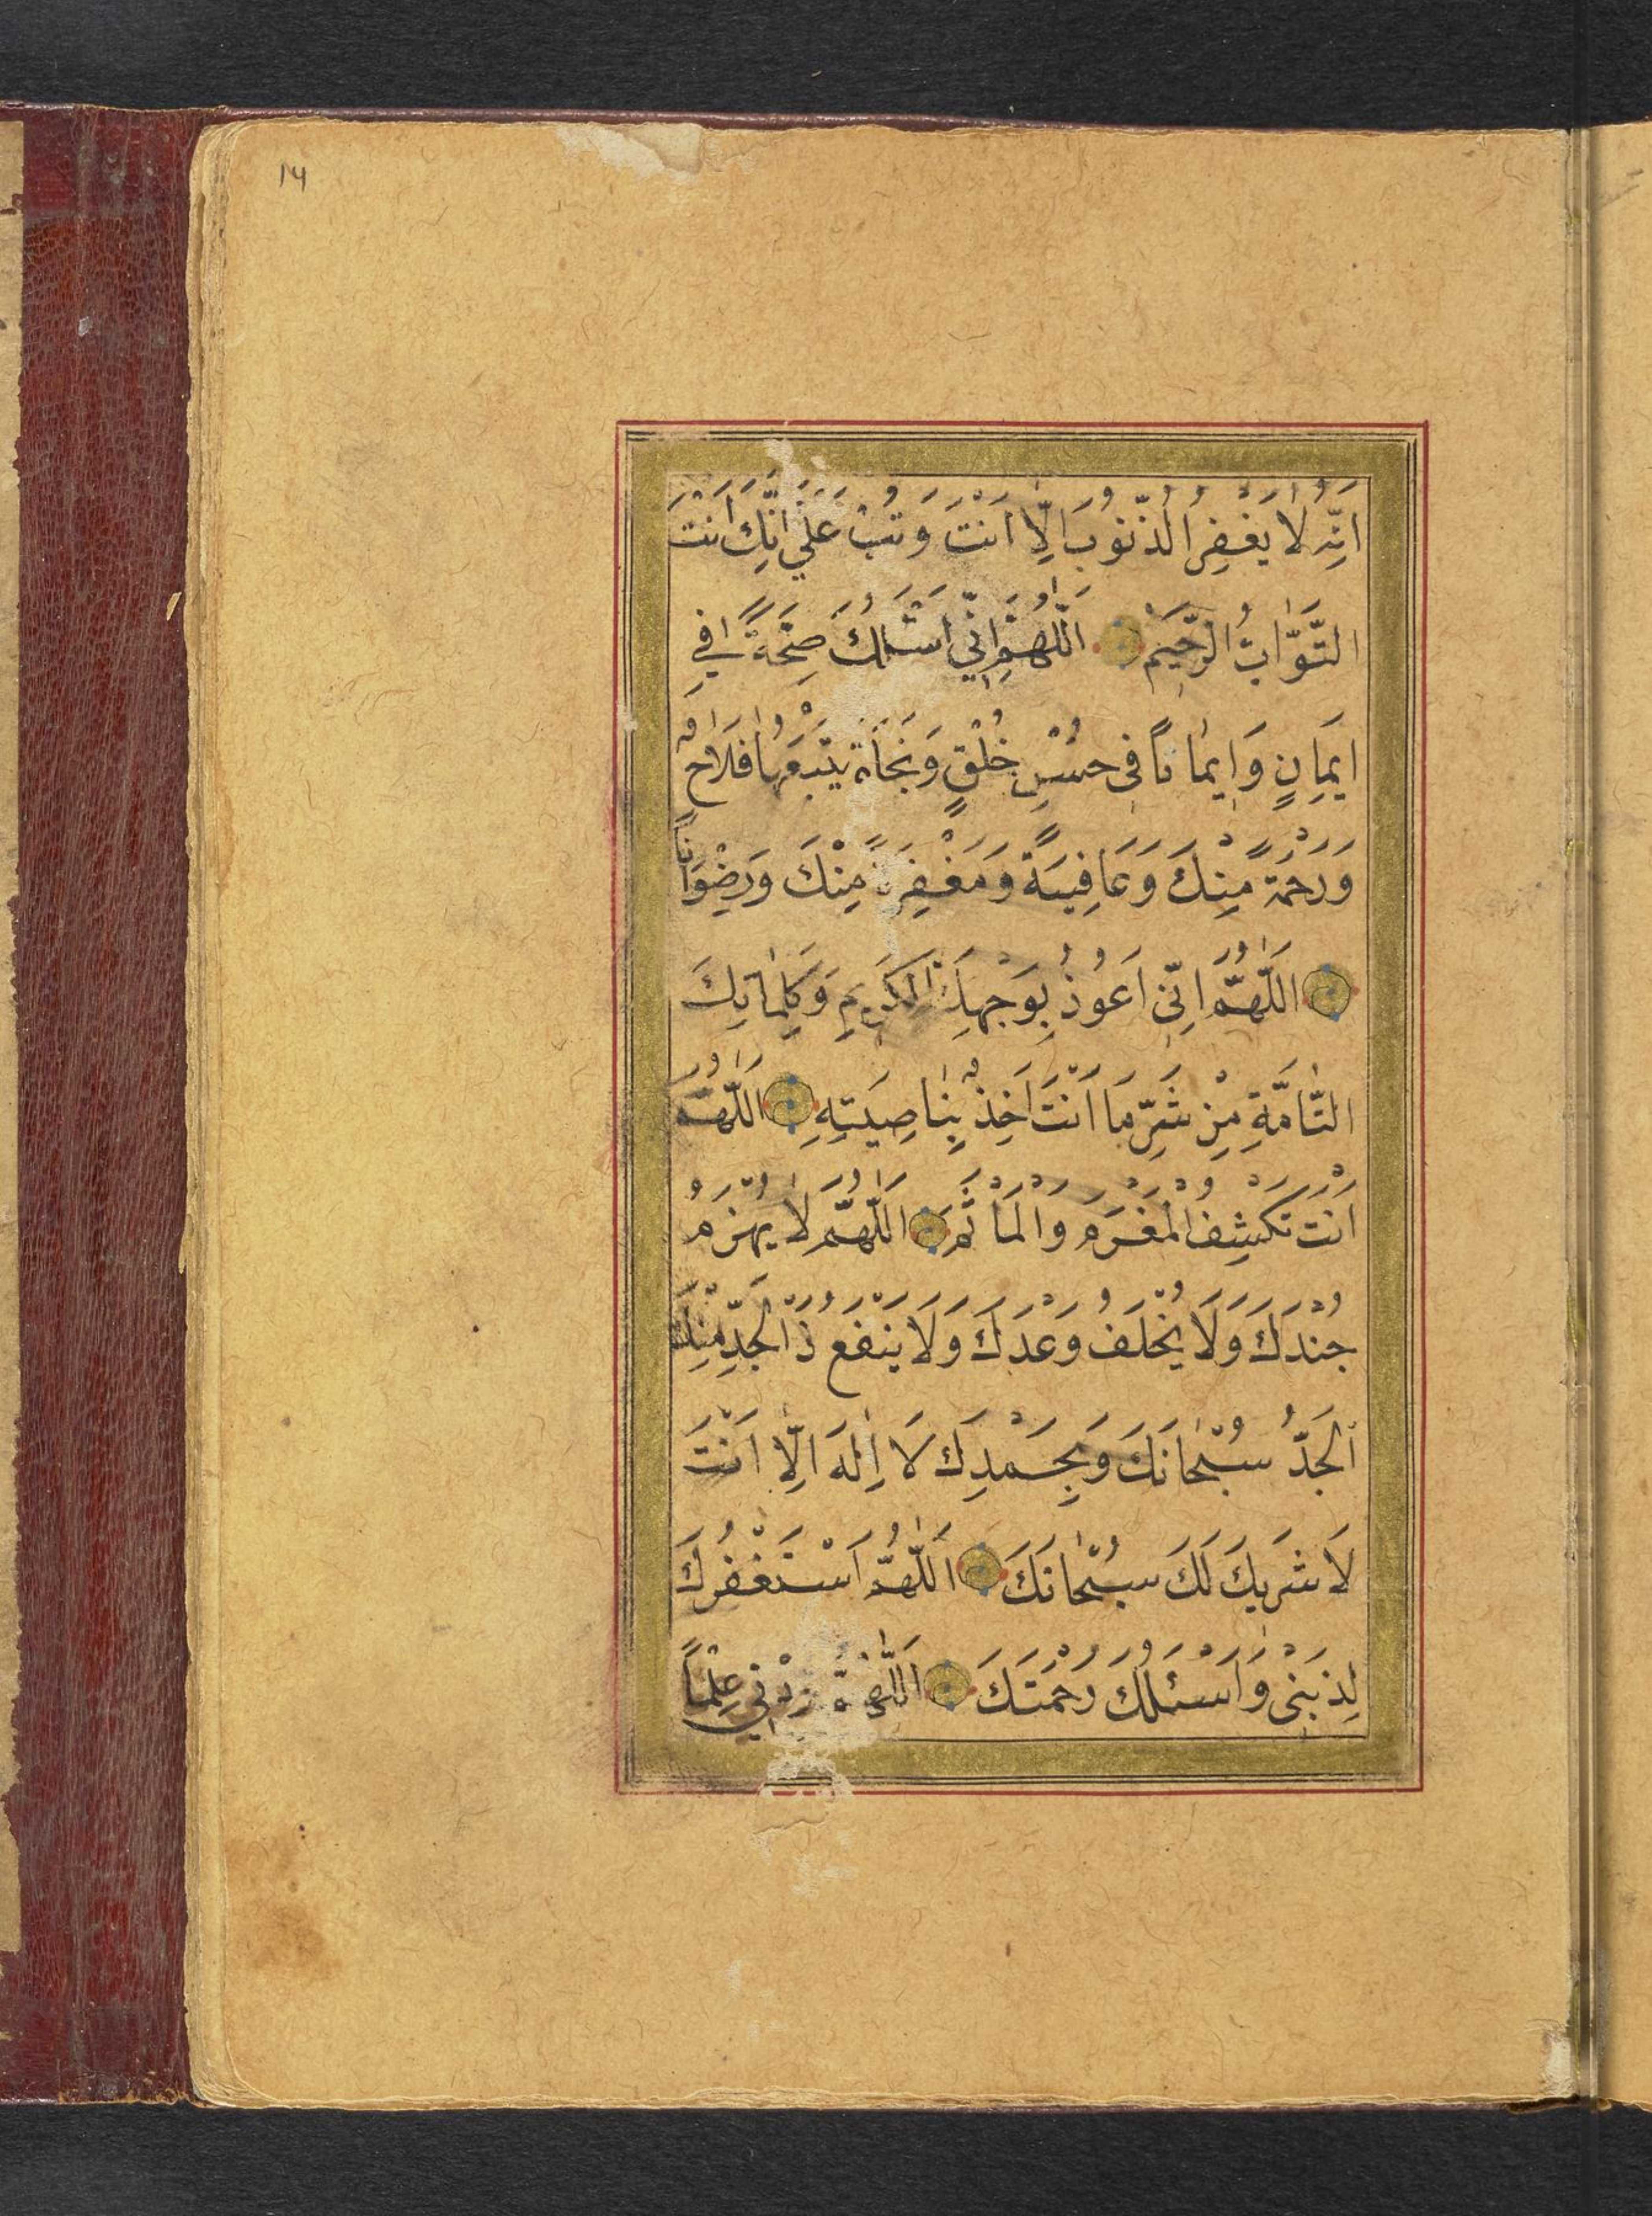 ١٣
اِنَّهُ لَا يَغْفِرُ الذُّنُوبَ اِلَّا اَنْتَ وَتُبْ عَلَيَّ اِنَّكَ اَنْتَ
التَّوَّابُ الرَّحِيمُ اَللّٰهُمَّ اِنِّي اَسْئَلُكَ صِحَّةً فِي
اِيمَانٍ وَاِيمَانًا فِي حُسْنِ خُلْقٍ وَنَجَاةً يَتْبَعُهَا فَلَاحٌ
وَرَحْمَةً مِنْكَ وَعَافِيَةً وَمَغْفِرَةً مِنْكَ وَرِضْوَانًا
اَللّٰهُمَّ اِنِّي اَعُوذُ بِوَجْهِكَ الْكَرِيمِ وَكَلِمَاتِكَ
التَّامَّةِ مِنْ شَرِّ مَا اَنْتَ اٰخِذٌ بِنَاصِيَتِهِ اَللّٰهُمَّ
اَنْتَ تَكْشِفُ الْمَغْرَمَ وَالْمَأْثَمَ اَللّٰهُمَّ لَا يُهْزَمُ
جُنْدُكَ وَلَا يُخْلَفُ وَعْدُكَ وَلَا يَنْفَعُ ذَا الْجَدِّ مِنْكَ
اَلْجَدُّ سُبْحَانَكَ وَبِحَمْدِكَ لَا اِلٰهَ اِلَّا اَنْتَ
لَا شَرِيكَ لَكَ سُبْحَانَكَ اَللّٰهُمَّ اَسْتَغْفِرُكَ
لِذَنْبِي وَاَسْئَلُكَ رَحْمَتَكَ اَللّٰهُمَّ زِدْنِي عِلْمًا